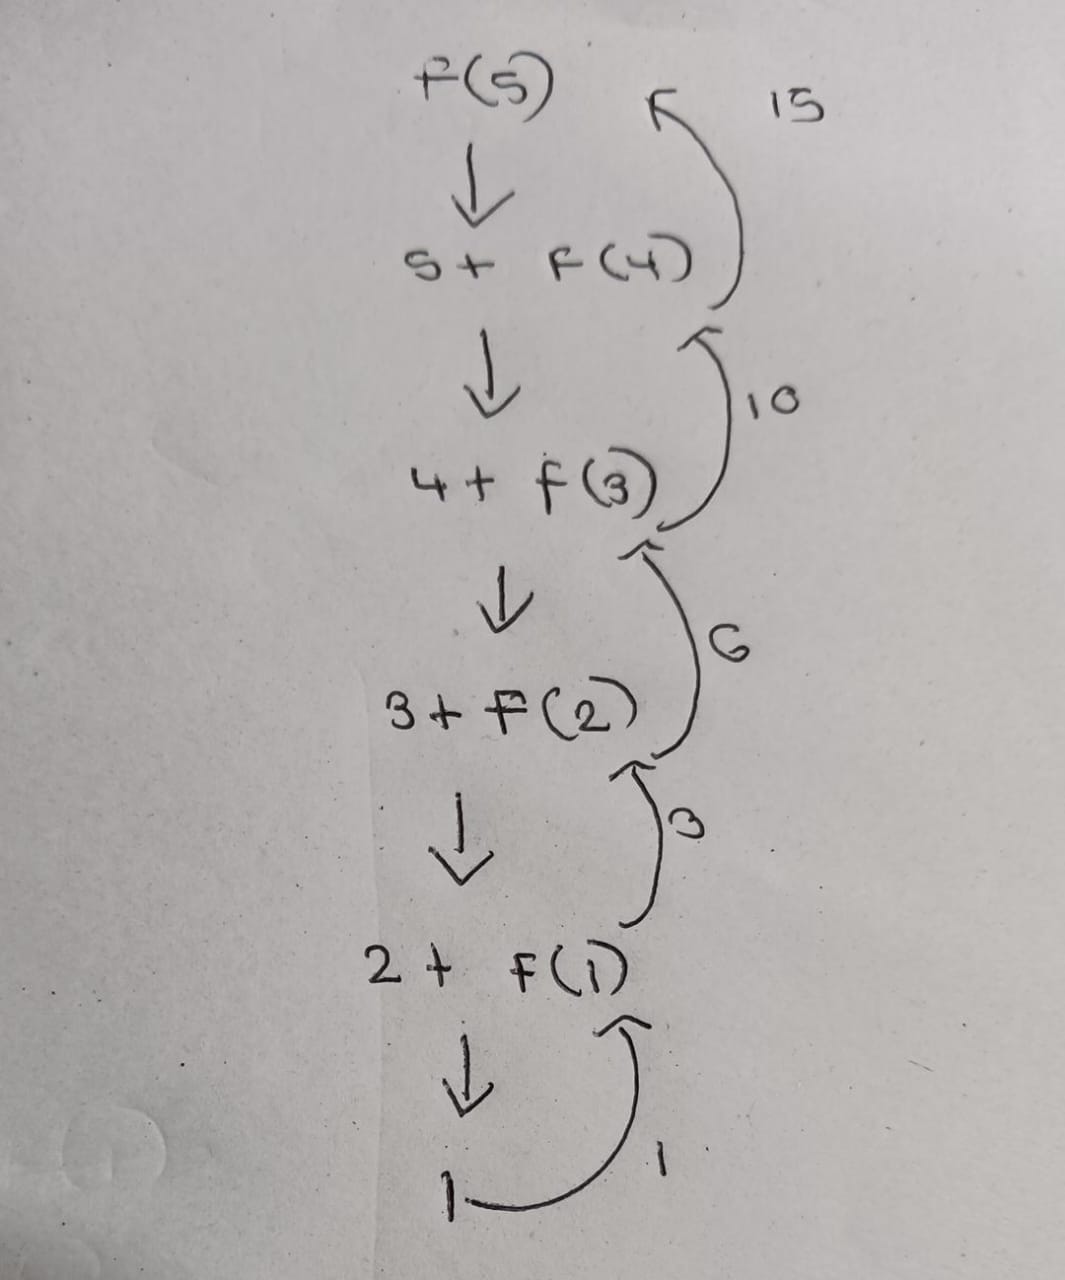 F(5)
15
5 + F(4)
10
4 + f(3)
6
3 + F(2)
3
2 + F(1)
1
1